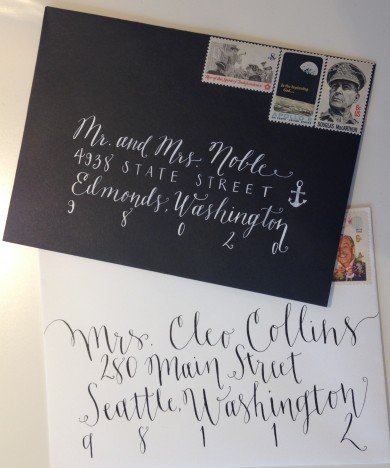 8c
In the beginning God...
DOUGLAS MacARTHUR
Mr. and Mrs. Noble
4938 STATE STREET
Edmonds, Washington
9 8 0 2 0
Mrs. Cleo Collins
280 Main Street
Seattle, Washington
9 8 1 1 2